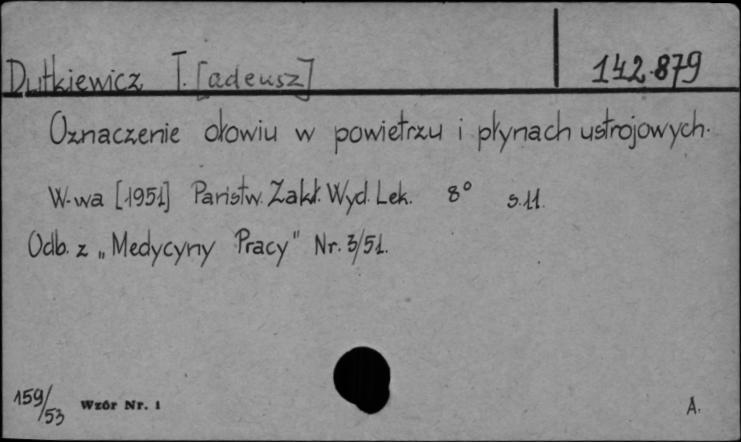 Dutkiewicz T. [adeusz] 142.879
Oznaczenie ołowiu w powietrzu i płynach ustrojowych.
W-wa [1951] Państw. Zakł. Wyd. Lek. 8° s. 11.
Odb. z „Medycyny Pracy" Nr. 3/51.
159/53 Wzór Nr. 1 A.